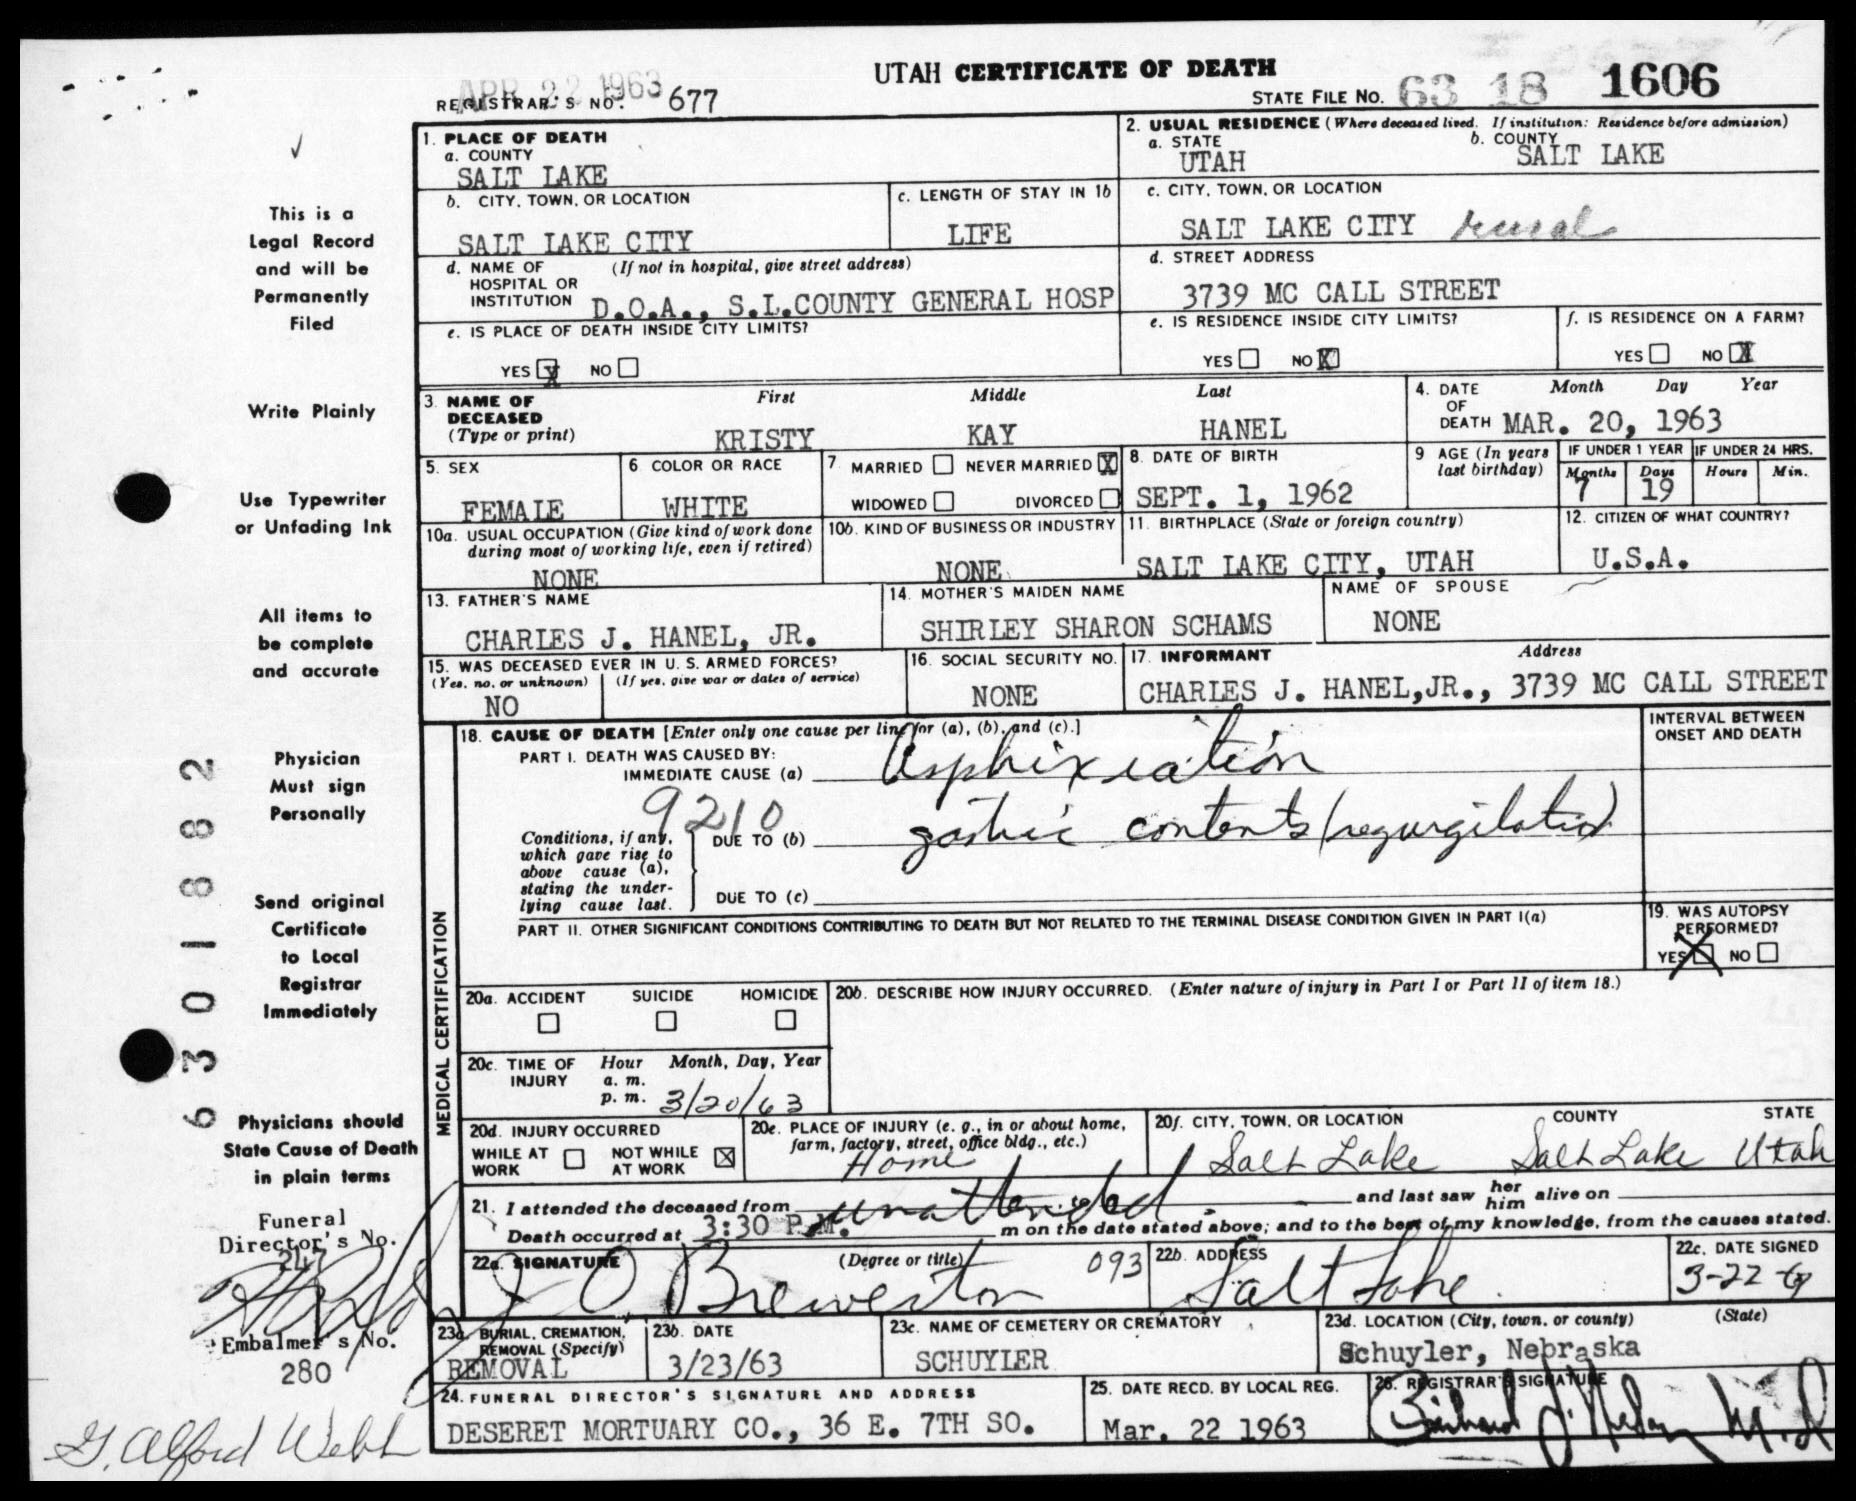 UTAH CERTIFICATE OF DEATH
APR 22 1963
REGISTRAR'S NO. 677
STATE FILE NO. 63 18 1606
1. PLACE OF DEATH
a. COUNTY
SALT LAKE
2. USUAL RESIDENCE (Where deceased lived. If institution: Residence before admission)
a. STATE
UTAH
b. COUNTY
SALT LAKE
b. CITY, TOWN, OR LOCATION
SALT LAKE CITY
c. LENGTH OF STAY IN 1b
LIFE
c. CITY, TOWN, OR LOCATION
SALT LAKE CITY rural
d. NAME OF HOSPITAL OR INSTITUTION (If not in hospital, give street address)
D.O.A., S.L.COUNTY GENERAL HOSP
d. STREET ADDRESS
3739 MC CALL STREET
e. IS PLACE OF DEATH INSIDE CITY LIMITS?
YES X NO
e. IS RESIDENCE INSIDE CITY LIMITS?
YES NO X
f. IS RESIDENCE ON A FARM?
YES NO X
3. NAME OF DECEASED (Type or print)
First Middle Last
KRISTY KAY HANEL
4. DATE OF DEATH
Month Day Year
MAR. 20, 1963
5. SEX
FEMALE
6. COLOR OR RACE
WHITE
7. MARRIED NEVER MARRIED X
WIDOWED DIVORCED
8. DATE OF BIRTH
SEPT. 1, 1962
9 AGE (In years last birthday)
IF UNDER 1 YEAR
Months Days
7 19
IF UNDER 24 HRS.
Hours Min.
10a. USUAL OCCUPATION (Give kind of work done during most of working life, even if retired)
NONE
10b. KIND OF BUSINESS OR INDUSTRY
NONE
11. BIRTHPLACE (State or foreign country)
SALT LAKE CITY, UTAH
12. CITIZEN OF WHAT COUNTRY?
U.S.A.
13. FATHER'S NAME
CHARLES J. HANEL, JR.
14. MOTHER'S MAIDEN NAME
SHIRLEY SHARON SCHAMS
NAME OF SPOUSE
NONE
15. WAS DECEASED EVER IN U. S. ARMED FORCES?
(Yes, no, or unknown) (If yes, give war or dates of service)
NO
16. SOCIAL SECURITY NO.
NONE
17. INFORMANT Address
CHARLES J. HANEL,JR., 3739 MC CALL STREET
MEDICAL CERTIFICATION
18. CAUSE OF DEATH [Enter only one cause per line for (a), (b), and (c).]
INTERVAL BETWEEN ONSET AND DEATH
PART I. DEATH WAS CAUSED BY:
IMMEDIATE CAUSE (a) Asphixiation
9210
Conditions, if any, which gave rise to above cause (a), stating the underlying cause last.
DUE TO (b) gastric contents (regurgitation)
DUE TO (c)
PART II. OTHER SIGNIFICANT CONDITIONS CONTRIBUTING TO DEATH BUT NOT RELATED TO THE TERMINAL DISEASE CONDITION GIVEN IN PART I(a)
19. WAS AUTOPSY PERFORMED?
YES X NO
20a. ACCIDENT SUICIDE HOMICIDE
20b. DESCRIBE HOW INJURY OCCURRED. (Enter nature of injury in Part I or Part II of item 18.)
20c. TIME OF INJURY
Hour Month, Day, Year
a. m.
p. m. 3/20/63
20d. INJURY OCCURRED
WHILE AT WORK NOT WHILE AT WORK X
20e. PLACE OF INJURY (e. g., in or about home, farm, factory, street, office bldg., etc.)
Home
20f. CITY, TOWN, OR LOCATION COUNTY STATE
Salt Lake Salt Lake Utah
21. I attended the deceased from unattended to and last saw her him alive on
Death occurred at 3:30 P.M. m on the date stated above; and to the best of my knowledge, from the causes stated.
22a. SIGNATURE (Degree or title)
J O Brewerton 093
22b. ADDRESS
Salt Lake
22c. DATE SIGNED
3-22-63
23a. BURIAL, CREMATION, REMOVAL (Specify)
REMOVAL
23b. DATE
3/23/63
23c. NAME OF CEMETERY OR CREMATORY
SCHUYLER
23d. LOCATION (City, town, or county) (State)
Schuyler, Nebraska
24. FUNERAL DIRECTOR'S SIGNATURE AND ADDRESS
DESERET MORTUARY CO., 36 E. 7TH SO.
25. DATE RECD. BY LOCAL REG.
Mar. 22 1963
26. REGISTRAR'S SIGNATURE
M.D.
This is a
Legal Record
and will be
Permanently
Filed
Write Plainly
Use Typewriter
or Unfading Ink
All items to
be complete
and accurate
Physician
Must sign
Personally
Send original
Certificate
to Local
Registrar
Immediately
Physicians should
State Cause of Death
in plain terms
6301882
Funeral
Director's No.
247
Embalmer's No.
280
G. Alford Webb